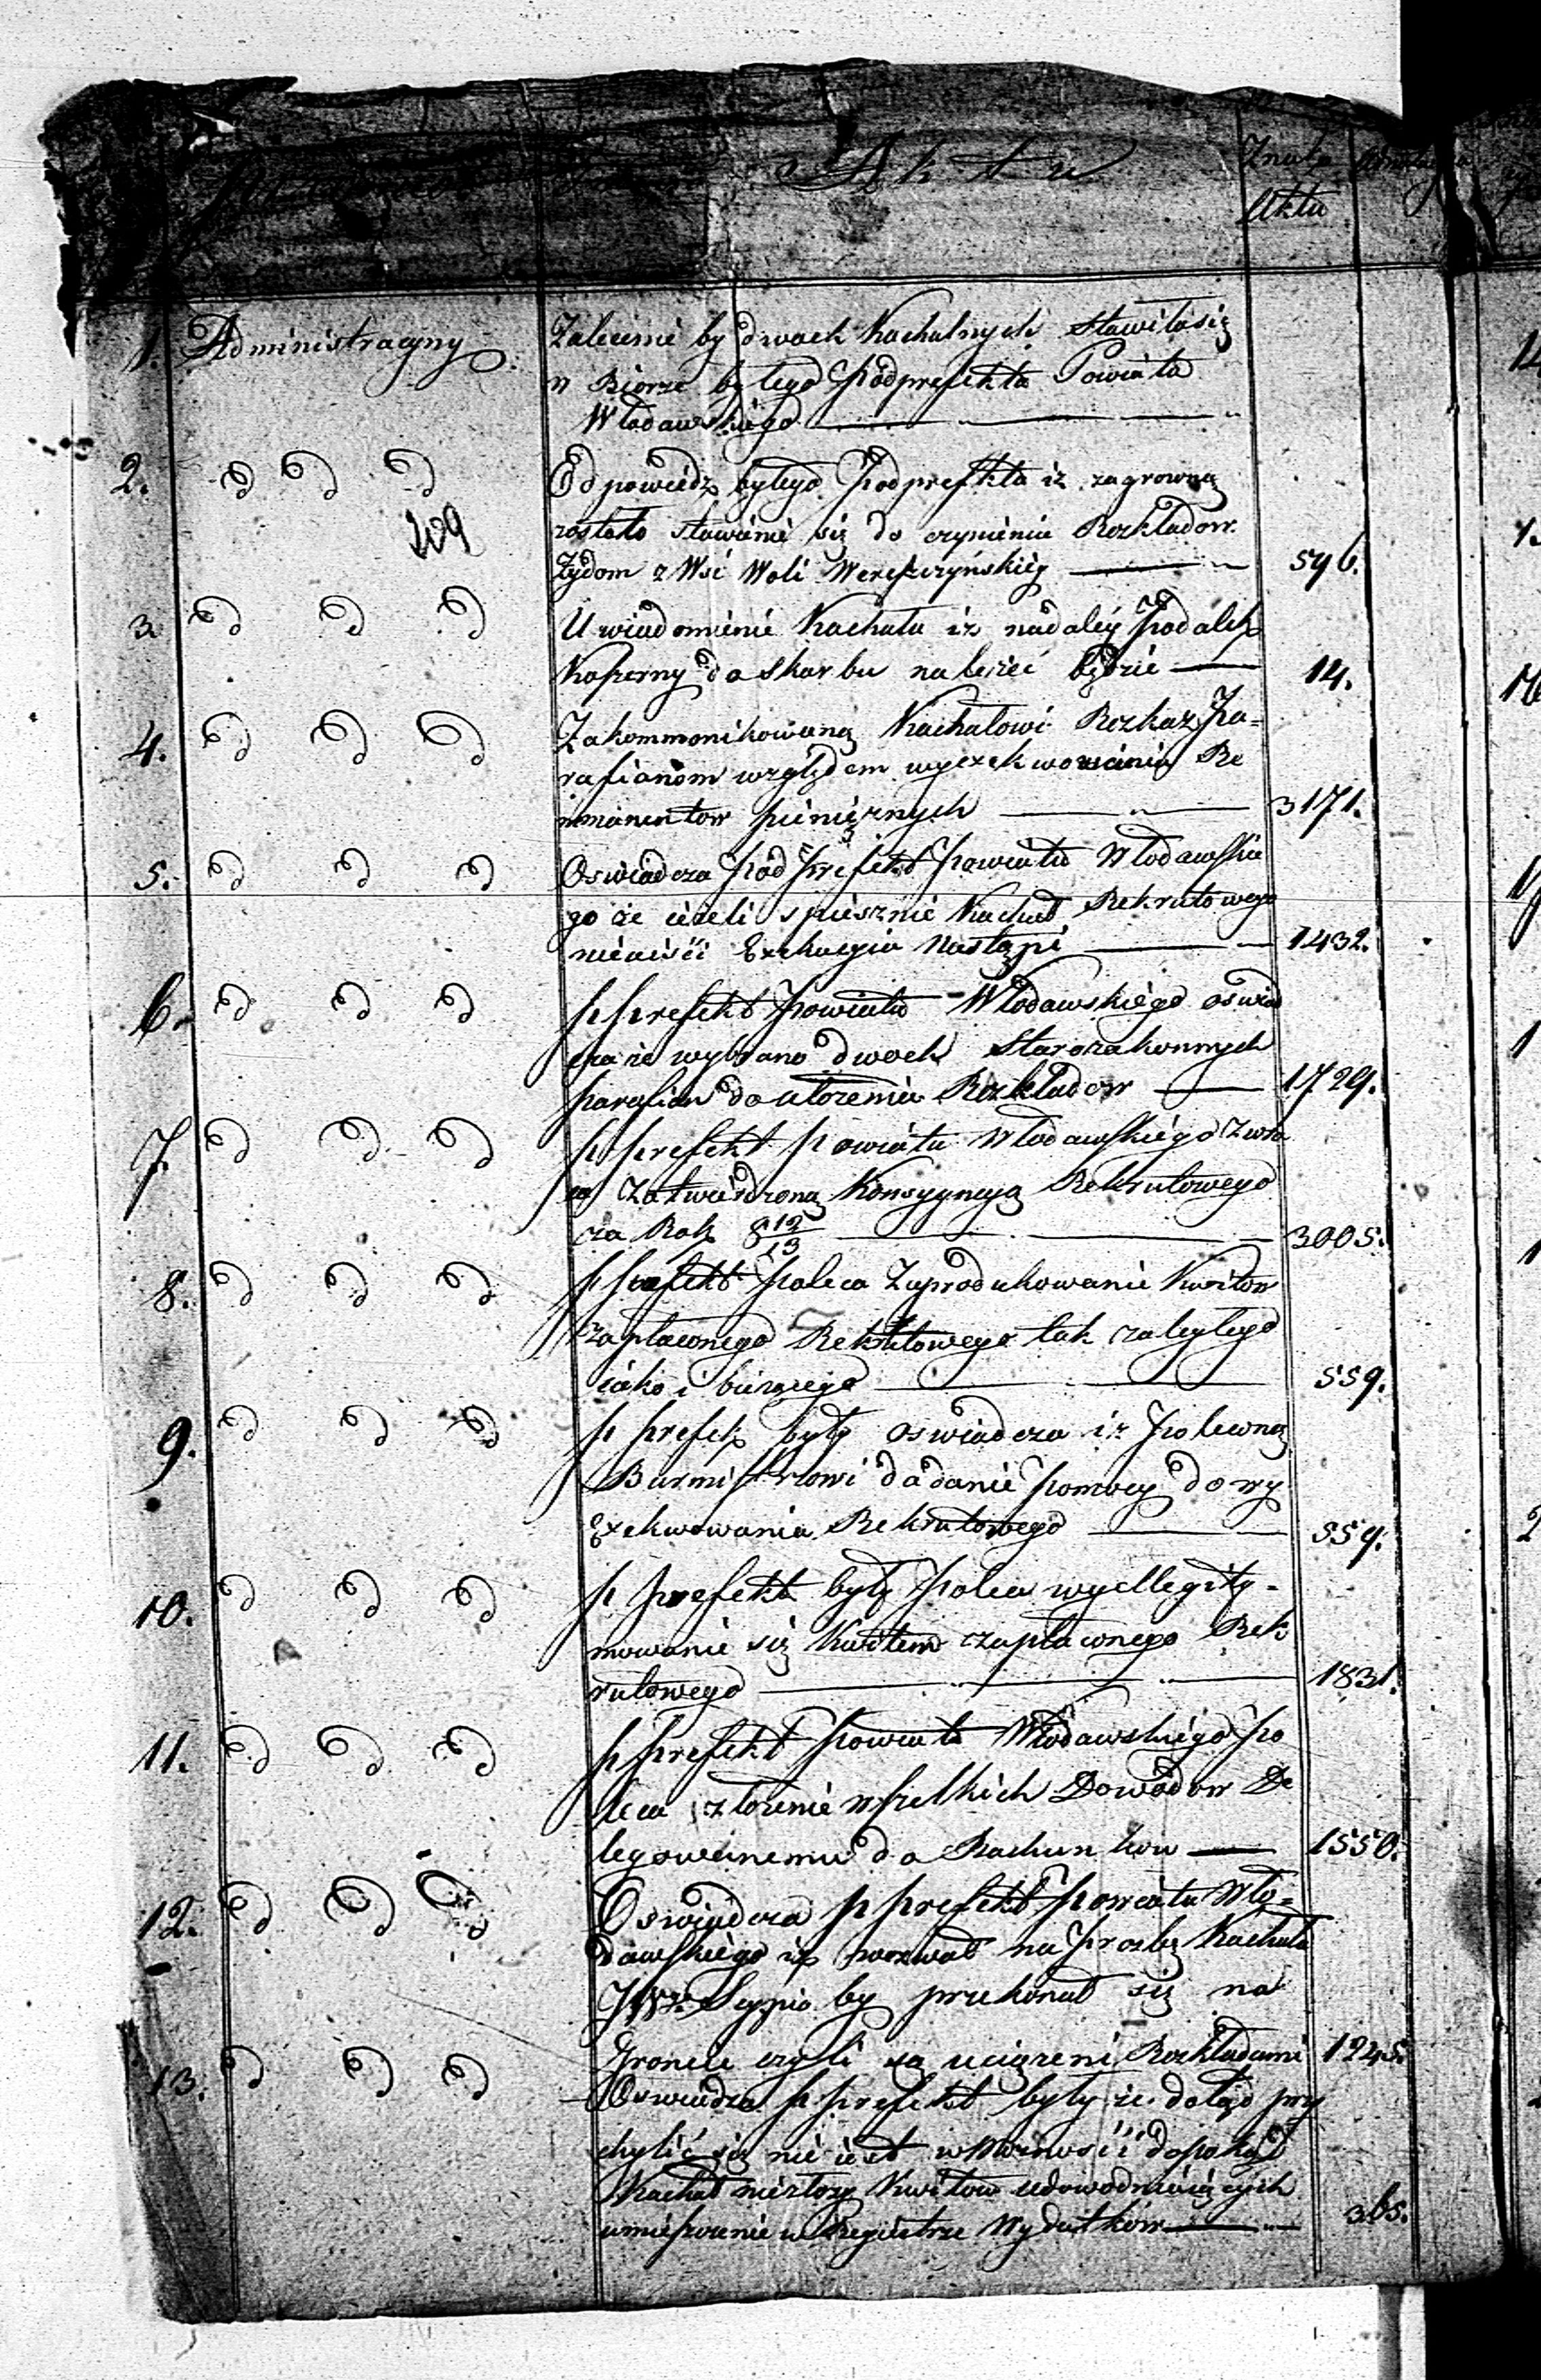 Aktu
Znak
Aktu
1. Administracyny Zalecenie by dwoch Kachalnych stawiła się
w Biorze byłego Podprefekta Powiata
Włodawskiego
2. D D D Odpowiedz byłego Podprefekta iz zagrowną
209
zostało stawienie się do czynienia Rozkładow
Żydom z Wsi Woli Wereszczyńskiéy 596.
3 D D D Uwiadomienie Kachału iz nadaléy Podatek
Koszerny do Skarbu należeć będzie 14.
4. D D D Zakommonikowaną Kachałowi Rozkaz Pa=
rafianom względem wyexekwowania Re
manentow pieniężnych 3171.
5. D D D Oswiadcza Podprefekt Powiatu Włodawskie
go że ieżeli spiesznie Kachał Rekrutowego
nieuiści Exekucyia Nastąpi 1432.
6. D D D p prefekt Powiatu Włodawskiégo oswiad
cza że wybrano dwoch Starozakonnych
parafian do ułozenia Rozkładow 1729.
7. D D D p prefekt Powiatu Włodawskiégo Zwra
ca Zatwierdzoną Konsygnacyą Rekrutowego
za Rok 8 12/13 3005.
8. D D D p prefekt Poleca Zaprodukowanie Kwitow
Zapłaconego Rekrutowego tak zaległego
iako i bieżącego 559.
9. D D D p prefek były oswiadcza iz Polewną
Burmistrzowi dodanie pomocy do wy
Exekwowania Rekrutowego 559.
10. D D D p prefekt były Poleca wyellegity-
mowanie się Kwitem zapłaconego Rek
rutowego 1831.
11. D D D p prefekt Powiata Włodawskiégo Po
leca złożenie wszelkich Dowodow De
legowanemu do Rachunkow 1550.
12. D D D Oswiadcza p prefekt Powiatu Wło=
dawskiégo iz wezwał na Prozbę Kachała
JW. Sęypio by przekonał się na
Groncie czyli są uciążeni Rozkładami 1245.
13. D D D Oswiadcza p prefekt były że dotąd przy
chylić się nie iest w Mozności dopokąd
Kachał niezłozy Kwitow udowodniaiących
umieszczenie w Regiestrze Wydatków 365.